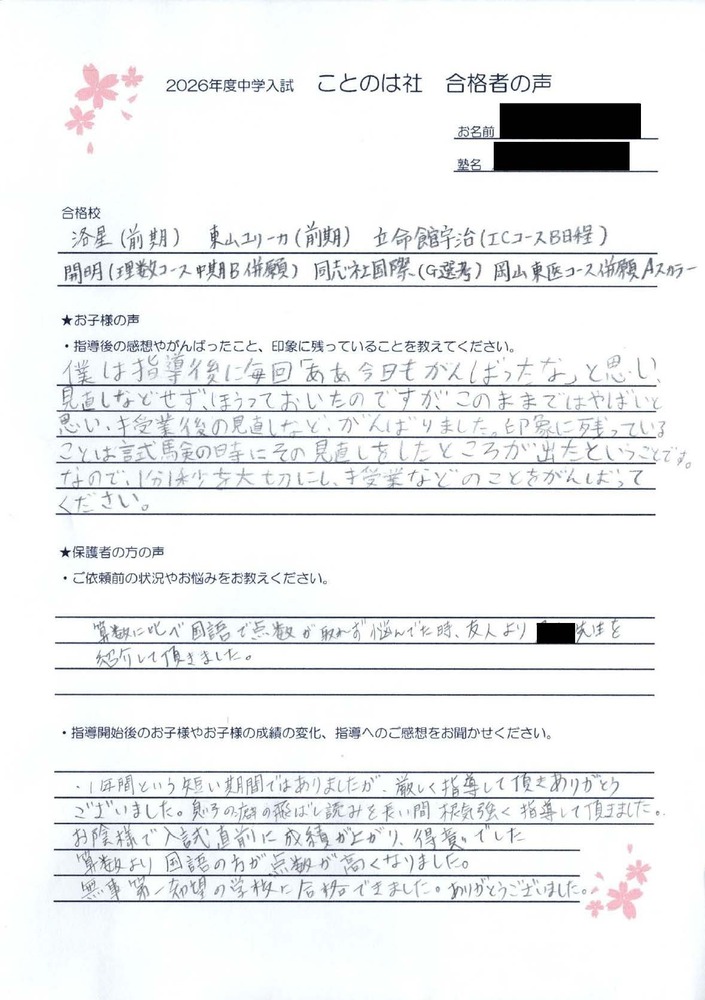 2026年度中学入試 ことのは社 合格者の声
お名前
塾名
合格校
洛星(前期) 東山ユリーカ(前期) 立命館宇治(ICコースB日程)
開明(理数コース中期B併願) 同志社国際(G選考) 岡山東医コース併願Aスカラー
★お子様の声
・指導後の感想やがんばったこと、印象に残っていることを教えてください。
僕は指導後に毎回「ああ今日もがんばったな」と思い、
見直しなどせず、ほうっておいたのですが、このままではやばいと
思い、授業後の見直しなど、がんばりました。印象に残っている
ことは試験の時にその見直しをしたところが出たということです。
なので、1分1秒を大切にし、授業などのことをがんばって
ください。
★保護者の方の声
・ご依頼前の状況やお悩みをお教えください。
算数に比べ国語で点数が取れず悩んでた時、友人より 先生を
紹介して頂きました。
・指導開始後のお子様やお子様の成績の変化、指導へのご感想をお聞かせください。
・1年間という短い期間ではありましたが、厳しく指導して頂きありがとう
ございました。息子の癖の飛ばし読みを長い間 根気強く指導して頂きました。
お陰様で入試直前に成績が上がり、得意でした
算数より国語の方が点数が高くなりました。
無事第一希望の学校に合格できました。ありがとうございました。